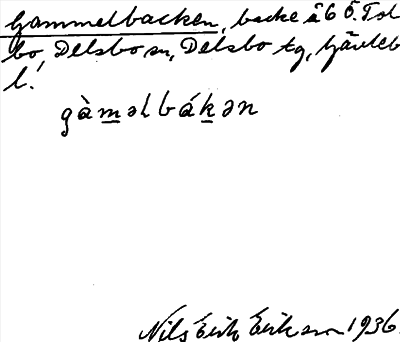 Gammelbacken, backe å 6 Ö. Tol
bo, Delsbo sn, Delsbo tg, Gävleb
l.
gàmǝlbákǝn
Nils Erik Erikson 1936.